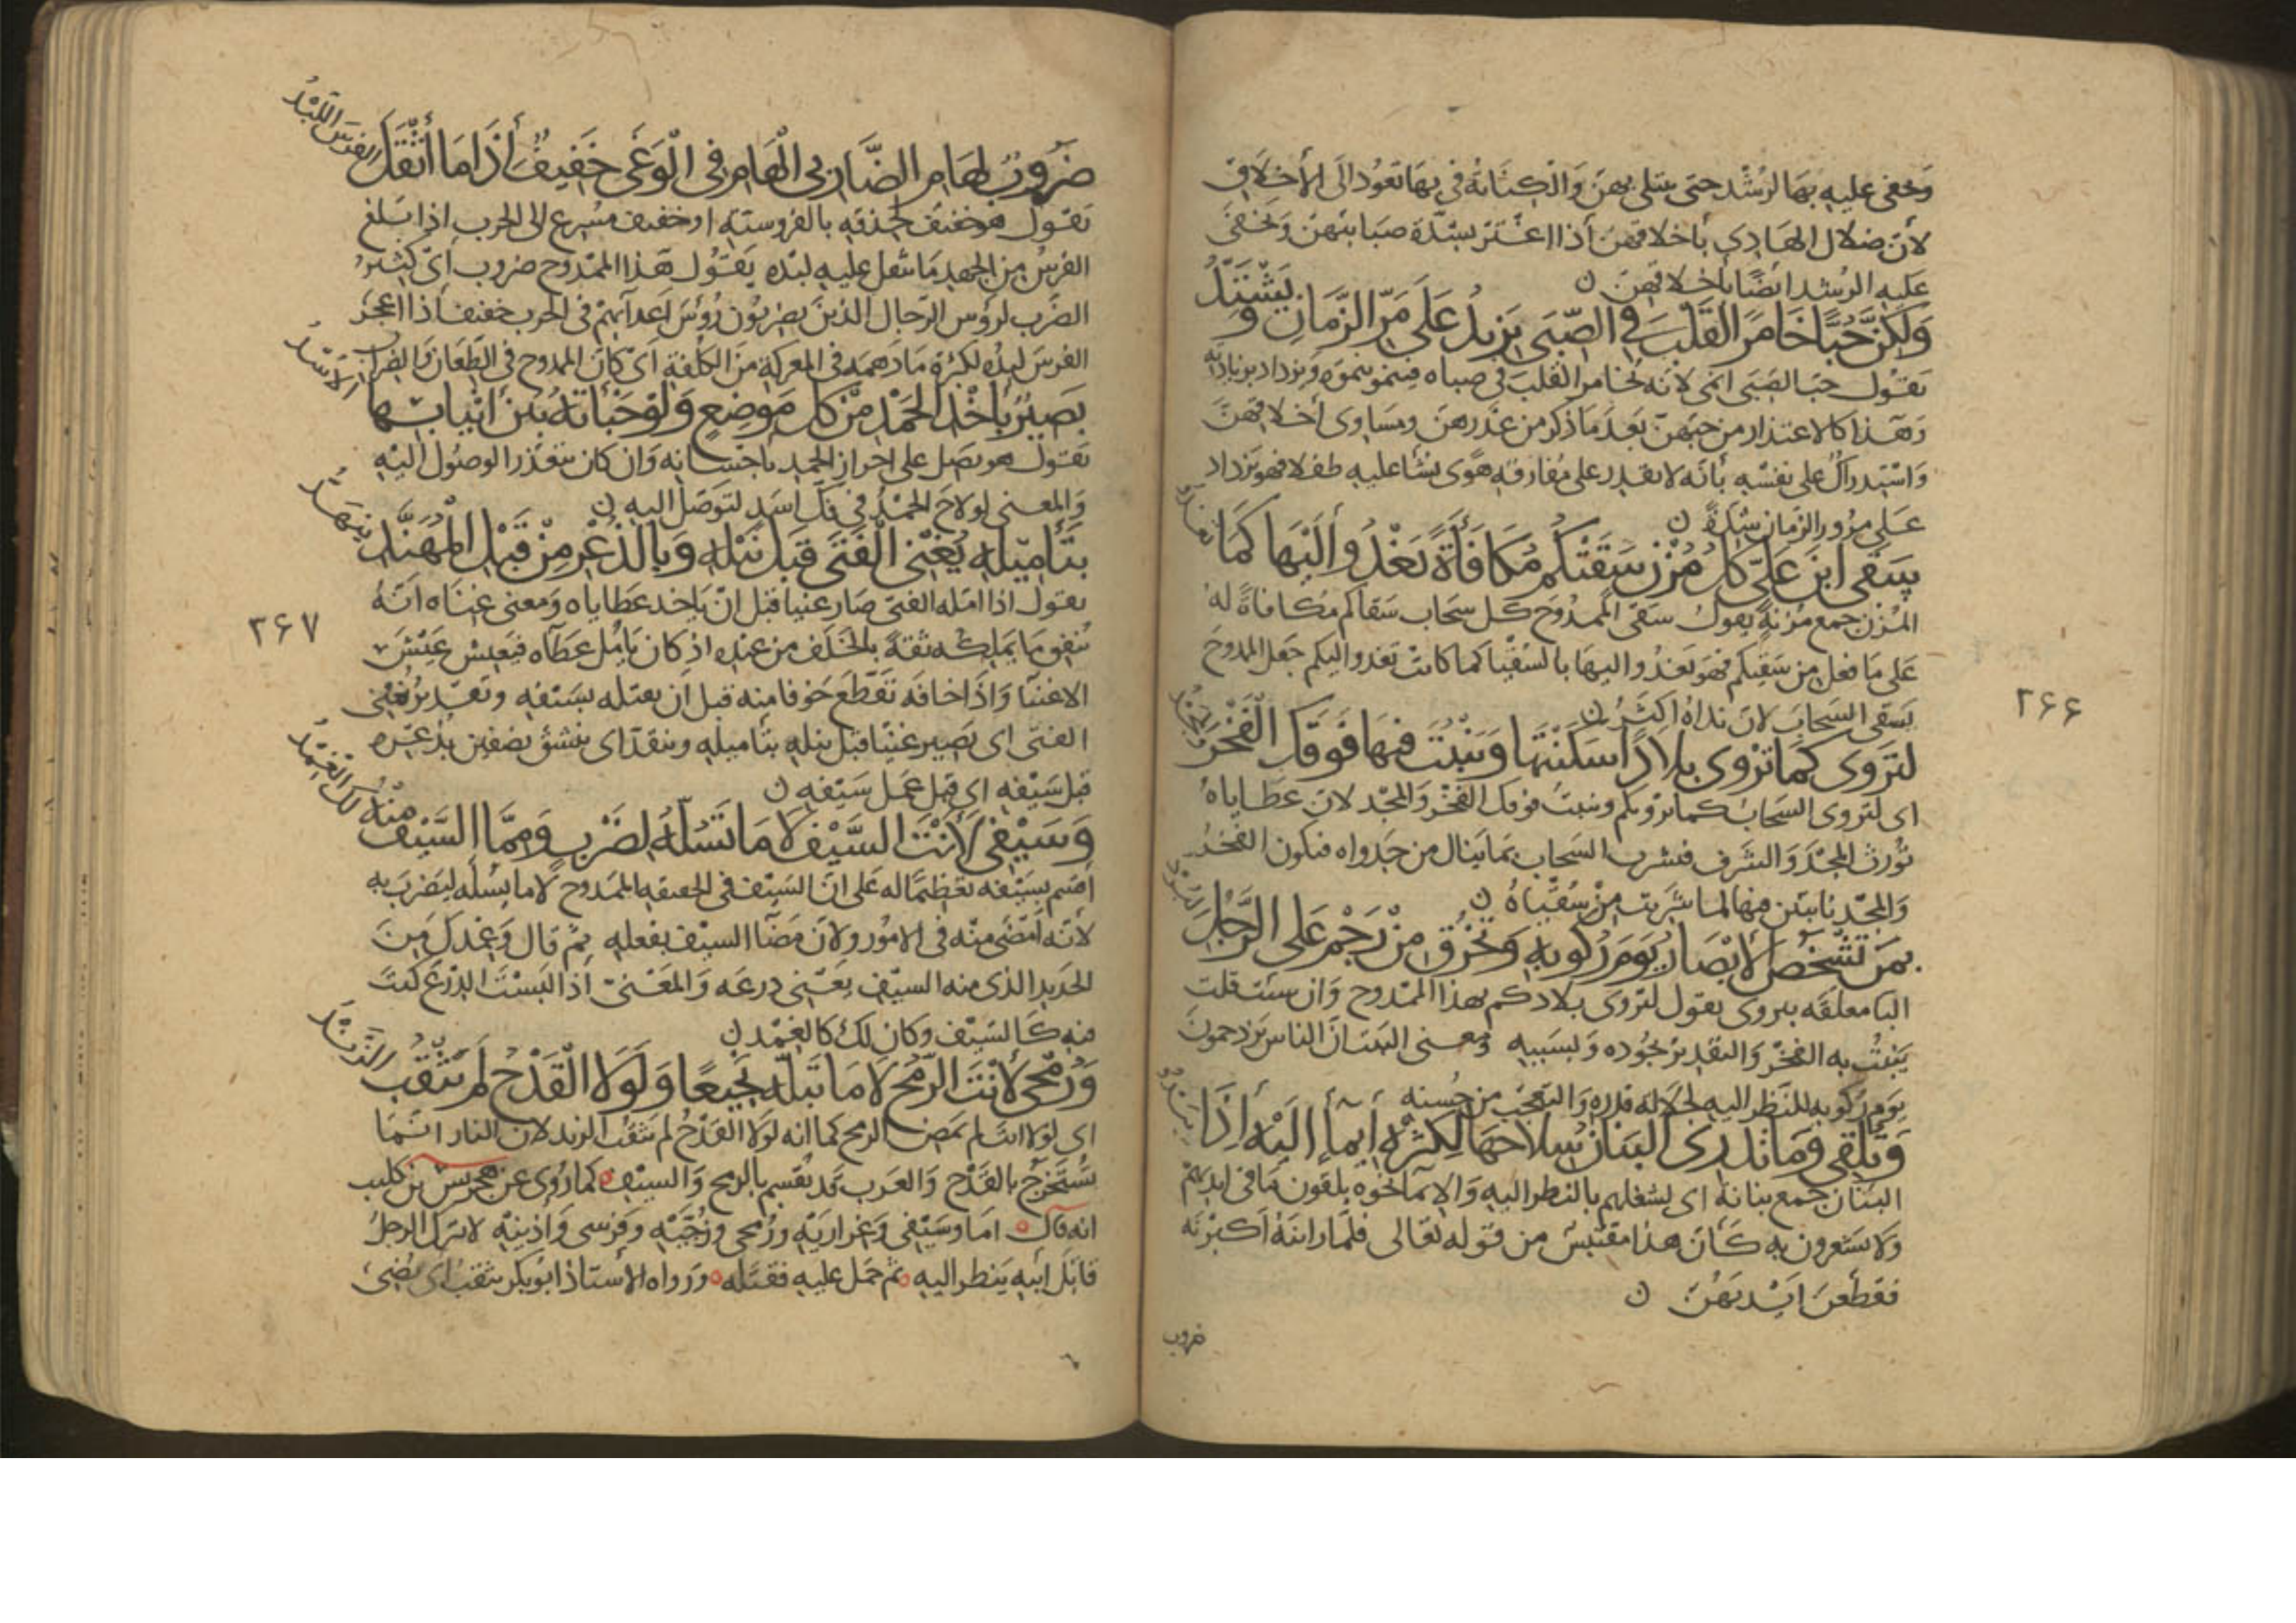 وَيخفى عليه بها الرشد حتى يبتلى بهن وَالكناية في بها تعود الى الأخلاق
لأن ضلال الهادي بأخلاقهن أذا اغتر بشدة صبابتهن وَيخفى
عليه الرشد ايضًا بأخلاقهن ن
وَلكِنَّ حُبًّا خَامَرَ القَلْبَ فِي الصِّبَى يَزِيدُ عَلَى مَرِّ الزَّمَانِ وَيَشْتَدُّ
يقول حب الصبى انمى لانه يخامر القلب في صباه فينمو بنموه ويزداد بزيادته
وَهَذا كالاعتذار من حبهن بعد مَا ذكر من غدرهن ومساوى أخلاقهن
وَاسْتدراك على نفسه بأنه لا يقدر على مفارقة هوًى نشأ عليه طفلا فهو يزداد
عَلى مرور الزمان شدة ن
سَقَى ابْنُ عَلِيٍّ كُلَّ مُزْنٍ سَقَتْكُمُ مُكَافَأَةً يَغْدُو أَلَيْهَا كَمَا تغدو
المزن جمع مزنة يقول سقى الممدوح كل سحاب سقاكم مكافاة له
عَلى مَا فعل من سقيكم فهو يغدو اليها بالسقيا كما كانت تغدو اليكم جعل الممدوح
يسقى السحاب لان نداه اكثر ن
لِتَرْوَى كَمَا تُرْوِى بِلَادًا سَكَنْتَهَا وَيَنْبُتَ فِيهَا فَوْقَكَ الْفَخْرُ وَالمجد
اى لتروى السحاب كما ترويكم وينبت فوقك الفخر وَالمجد لان عطاياه
تورث المجد وَالشرف فتشرب السحاب بما ينال من جدواه فيكون الفخر
وَالمجد نابتين فيها لما شربت من سقياه ن
بِمَنْ تَشْخَصُ الأَبْصَارُ يَوْمَ رُكُوبِهِ وَتَخْرُقُ مِنْ زَحْمٍ عَلَى الرَّجُلِ البرد
البا معلقه بيروى يقول لتروى بلادكم بهذا الممدوح وَان شئت قلت
يَنبت به الفخر وَالتقدير بجوده وَبسببه ومعنى البيت انَّ الناس يزدحمون
يوم ركوبه للنظر اليه لجلالة قدره وَالتعجب من حسنه
وَتُلْقِى وَمَا تَدْرِى البَنَانُ سِلَاحَهَا لِكَثْرَةِ أيماءٍ الَيْهِ إِذَا يبدو
البنان جمع بنانة اى لشغلهم بالنظر اليه وَالايماء نحوه يلقون مَا فى ايديهم
وَلا يشعرون به كأن هذا مقتبس من قوله تعالى فلما رأينه أكبرنه
فقطعن ايديهن ن
ضروب
٢٦٦
ضَرُوبٌ لِهَامِ الضَّارِبِى الْهَامِ فِى الْوَغَى خَفِيفٌ أذَا مَا أَثْقَلَ الفرس اللبد
يقول هو خفيف لحذقه بالفروسية او خفيف مسرع الى الحرب اذا بلغ
الفرس من الجهد مَا يثقل عليه لبده يقول هذا الممدوح ضروب أى كثير
الضرب لرؤس الرجال الذين يضربون رؤس اعدآئهم فى الحرب خفيف أذا اعجز
الفرس لبده لكثرة مَا دهمه فى المعركة من الكلفة أى كان الممدوح فى الطعان وَالضراب
بَصِيرٌ بِأخْذِ الحَمْدِ مِنْ كُلِّ مَوْضِعٍ وَلَوْ خَبَأَتْهُ بَيْنَ أَنْيَابِهَا الاسد
يقول هو بصير على احراز الحمد باحسانه وَان كان يتعذر الوصول اليه
وَالمعنى لو لاح الحمد فى فك أسد لتوصل اليه ن
بِتَأْمِيلِهِ يُغْنِى الْفَتَى قَبْلَ نَيْلِهِ وَبِالذُّعْرِ مِنْ قَبْلِ الْمُهَنَّدِ ينقد
يقول اذا امله الفتى صار غنيا قبل ان يأخذ عطاياه وَمعنى غناه انَّه
ينفق مَا يملكه ثقة بالخلف من عنده اذ كان يأمل عطآه فيعيش عيش
الاغنيا وَاذا خافه تقطع خوفا منه قبل أن يقتله بسيفه وتقدير يغنى
الفتى اى يصير غنيًا قبل نيله بتأميله وينقد اى ينشق نصفين بذعره
قبل سيفه اى قبل عمل سيفه ن
وَسَيْفِى لَأَنْتَ السَّيْفُ لَا مَا تَسُلُّهُ لِضَرْبٍ وَمِمَّا السَّيْفُ مِنْهُ لك الغمد
اقسم بسيفه تعظيمًا له على ان السيف فى الحقيقه الممدوح لا ما يسله ليضرب به
لأنه أمضى منه فى الامور ولان مضآ السيف بفعله ثم قال وَغمدك من
الحديد الذى منه السيف يعنى درعه وَالمعنى اذا لبست الدرع كنت
فيه كالسيف وكان لك كالغمد ن
وَرُمْحِى لَأَنْتَ الرُّمْحُ لَا مَا تَبُلُّهُ نَجِيعًا وَلَوْلَا الْقَدْحُ لَمْ يَثْقُبِ الزند
اى لولا انت لم يمض الرمح كما انه لولا القدح لم يثقب الزند لان النار انما
تستخرج بالقدح وَالعرب قد تقسم بالرمح وَالسيف كما روى عن هجرس بن كليب
انه قال اما وسيفى وَغراريه ورمحى وزجيه وَفرسى وَاذنيه لا يترك الرجل
قاتل ابيه ينظر اليه ثم حمل عليه فقتله ورواه الأستاذ ابو بكر يثقب أى يضى
٢٦٧